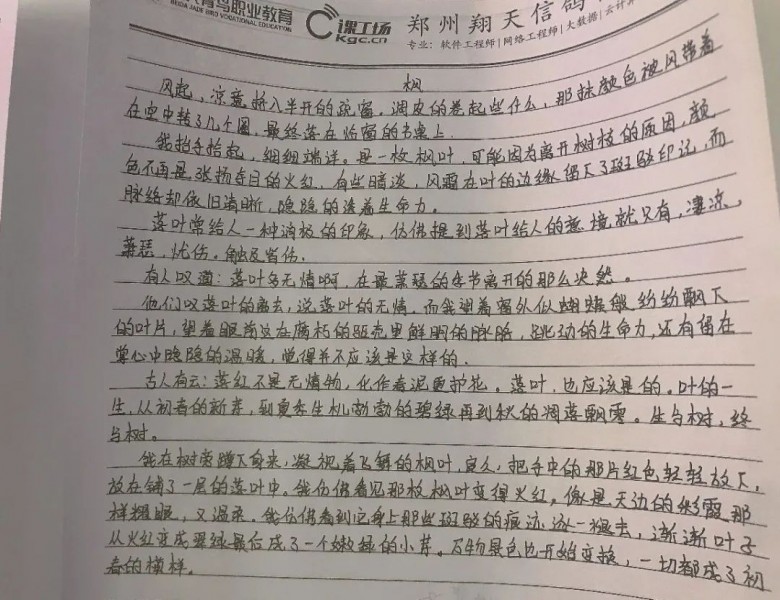 青鸟职业教育
BEIDA JADE BIRD VOCATIONAL EDUCATION
课工场
kgc.cn
郑州翔天信鸽
专业：软件工程师|网络工程师|大数据|云计算
枫
风起，凉意挤入半开的疏窗，调皮的卷起些什么，那抹颜色被风带着
在空中转了几个圈，最终落在临窗的书桌上.
我抬手拾起，细细端详。是一枚枫叶，可能因为离开树枝的原因，颜
色不再是张扬夺目的火红，有些暗淡，风霜在叶的边缘留下了斑驳印记，而
脉络却依旧清晰，隐隐的透着生命力。
落叶常给人一种消极的印象，仿佛提到落叶给人的意境就只有，凄凉，
萧瑟，忧伤。触及皆伤.
有人叹道：落叶多无情啊，在最萧瑟的季节离开的那么决然。
他们叹落叶的离去，说落叶的无情，而我望着窗外似蝴蝶般纷纷飘下
的叶片，望着眼前这在腐朽的躯壳里鲜明的脉络，跳动的生命力，还有留在
掌心中隐隐的温暖，觉得并不应该是这样的.
古人有云：落红不是无情物，化作春泥更护花。落叶，也应该是的。叶的一
生，从初春的新芽，到夏季生机勃勃的碧绿再到秋的凋落飘零。生与树，终
与树。
我在树旁蹲下身来，凝视着飞舞的枫叶，良久，把手中的那片红色轻轻放下，
放在铺了一层的落叶中。我仿佛看见那枚枫叶变得火红，像是天边的彩霞那
样耀眼，又温柔。我仿佛看到它身上那些斑驳的痕迹逐一褪去，渐渐叶子
从火红变成翠绿最后成了一个嫩绿的小芽。万物景色也开始变换，一切都成了初
春的模样。